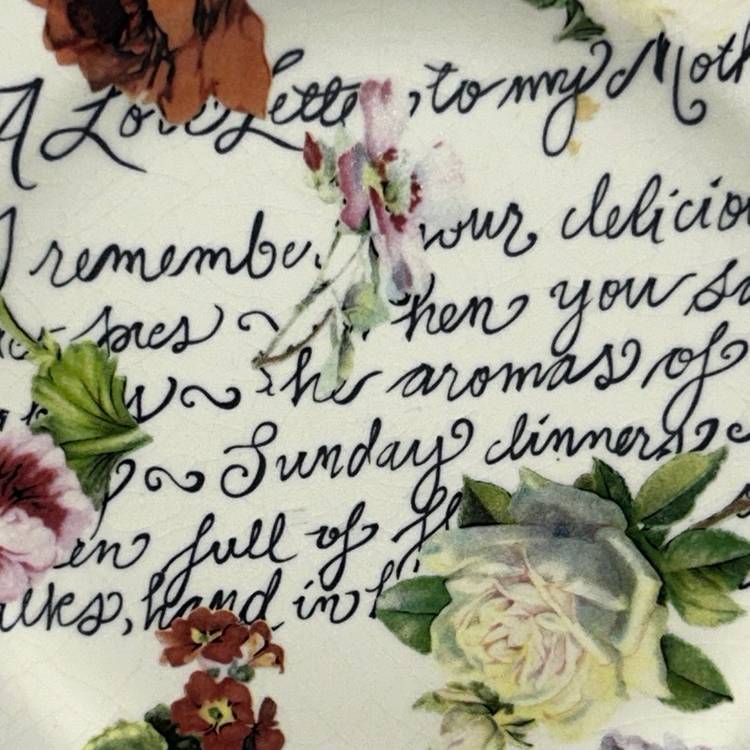 A Love Letter, to my Moth
I remember your delicio
pies ~ when you sa
~ the aromas of
~ Sunday dinners,
en full of fl
alks, hand in h